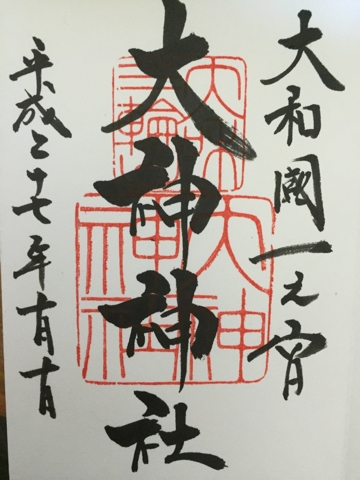 大和國一之宮
大神神社
平成二十七年十月十日
大神神社